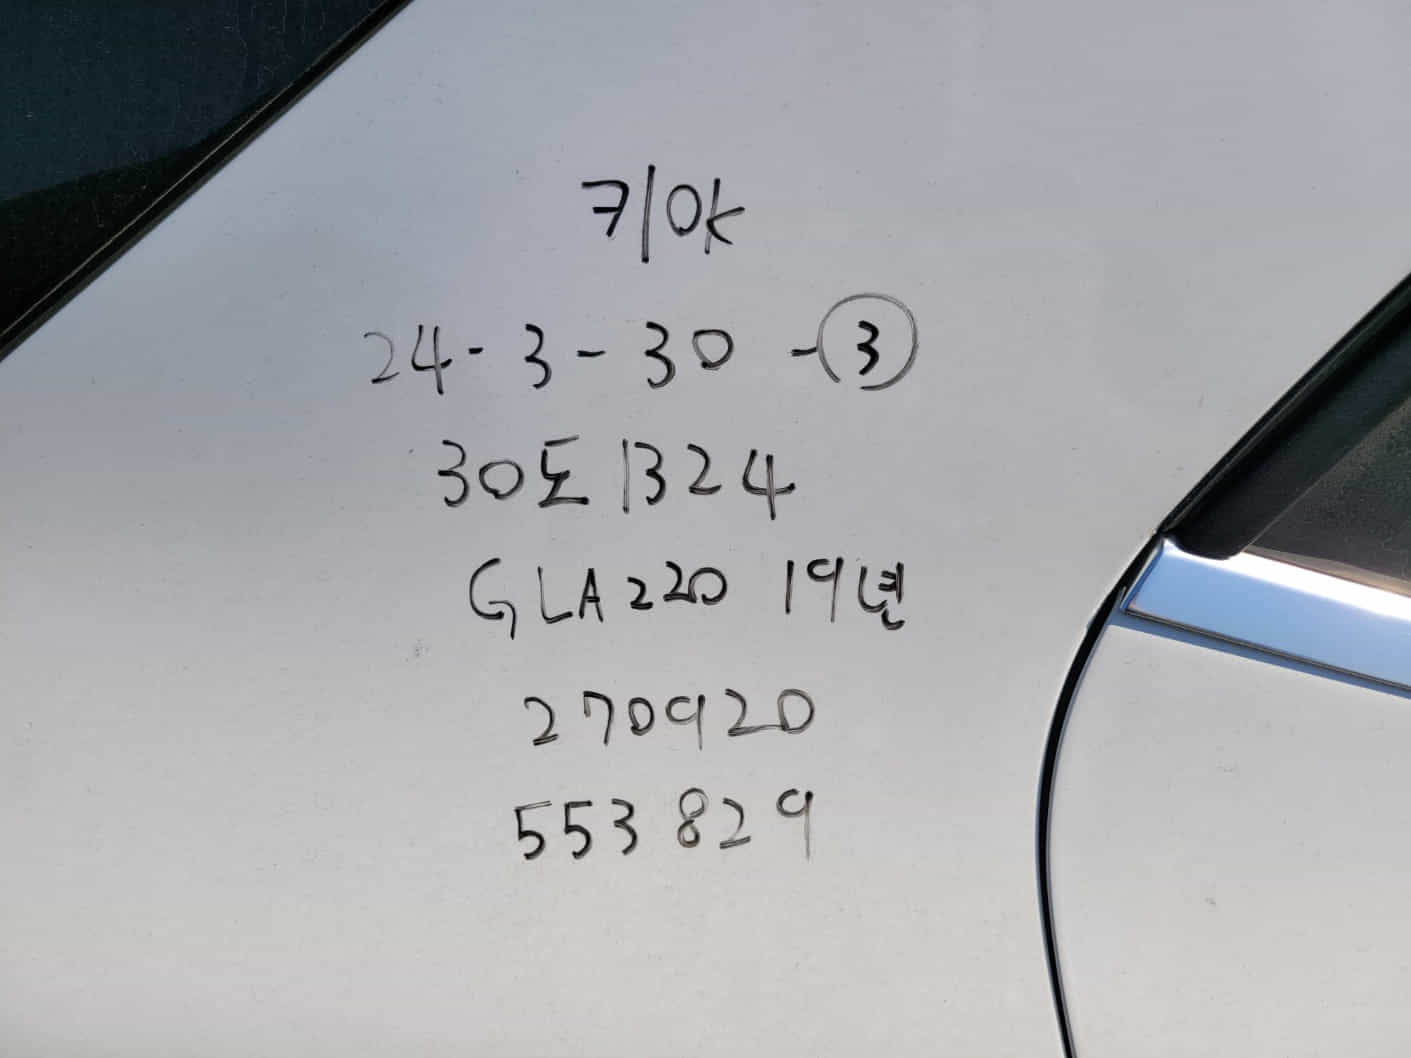 키ok
24-3-30-③
30도1324
GLA220 19년
270920
553829